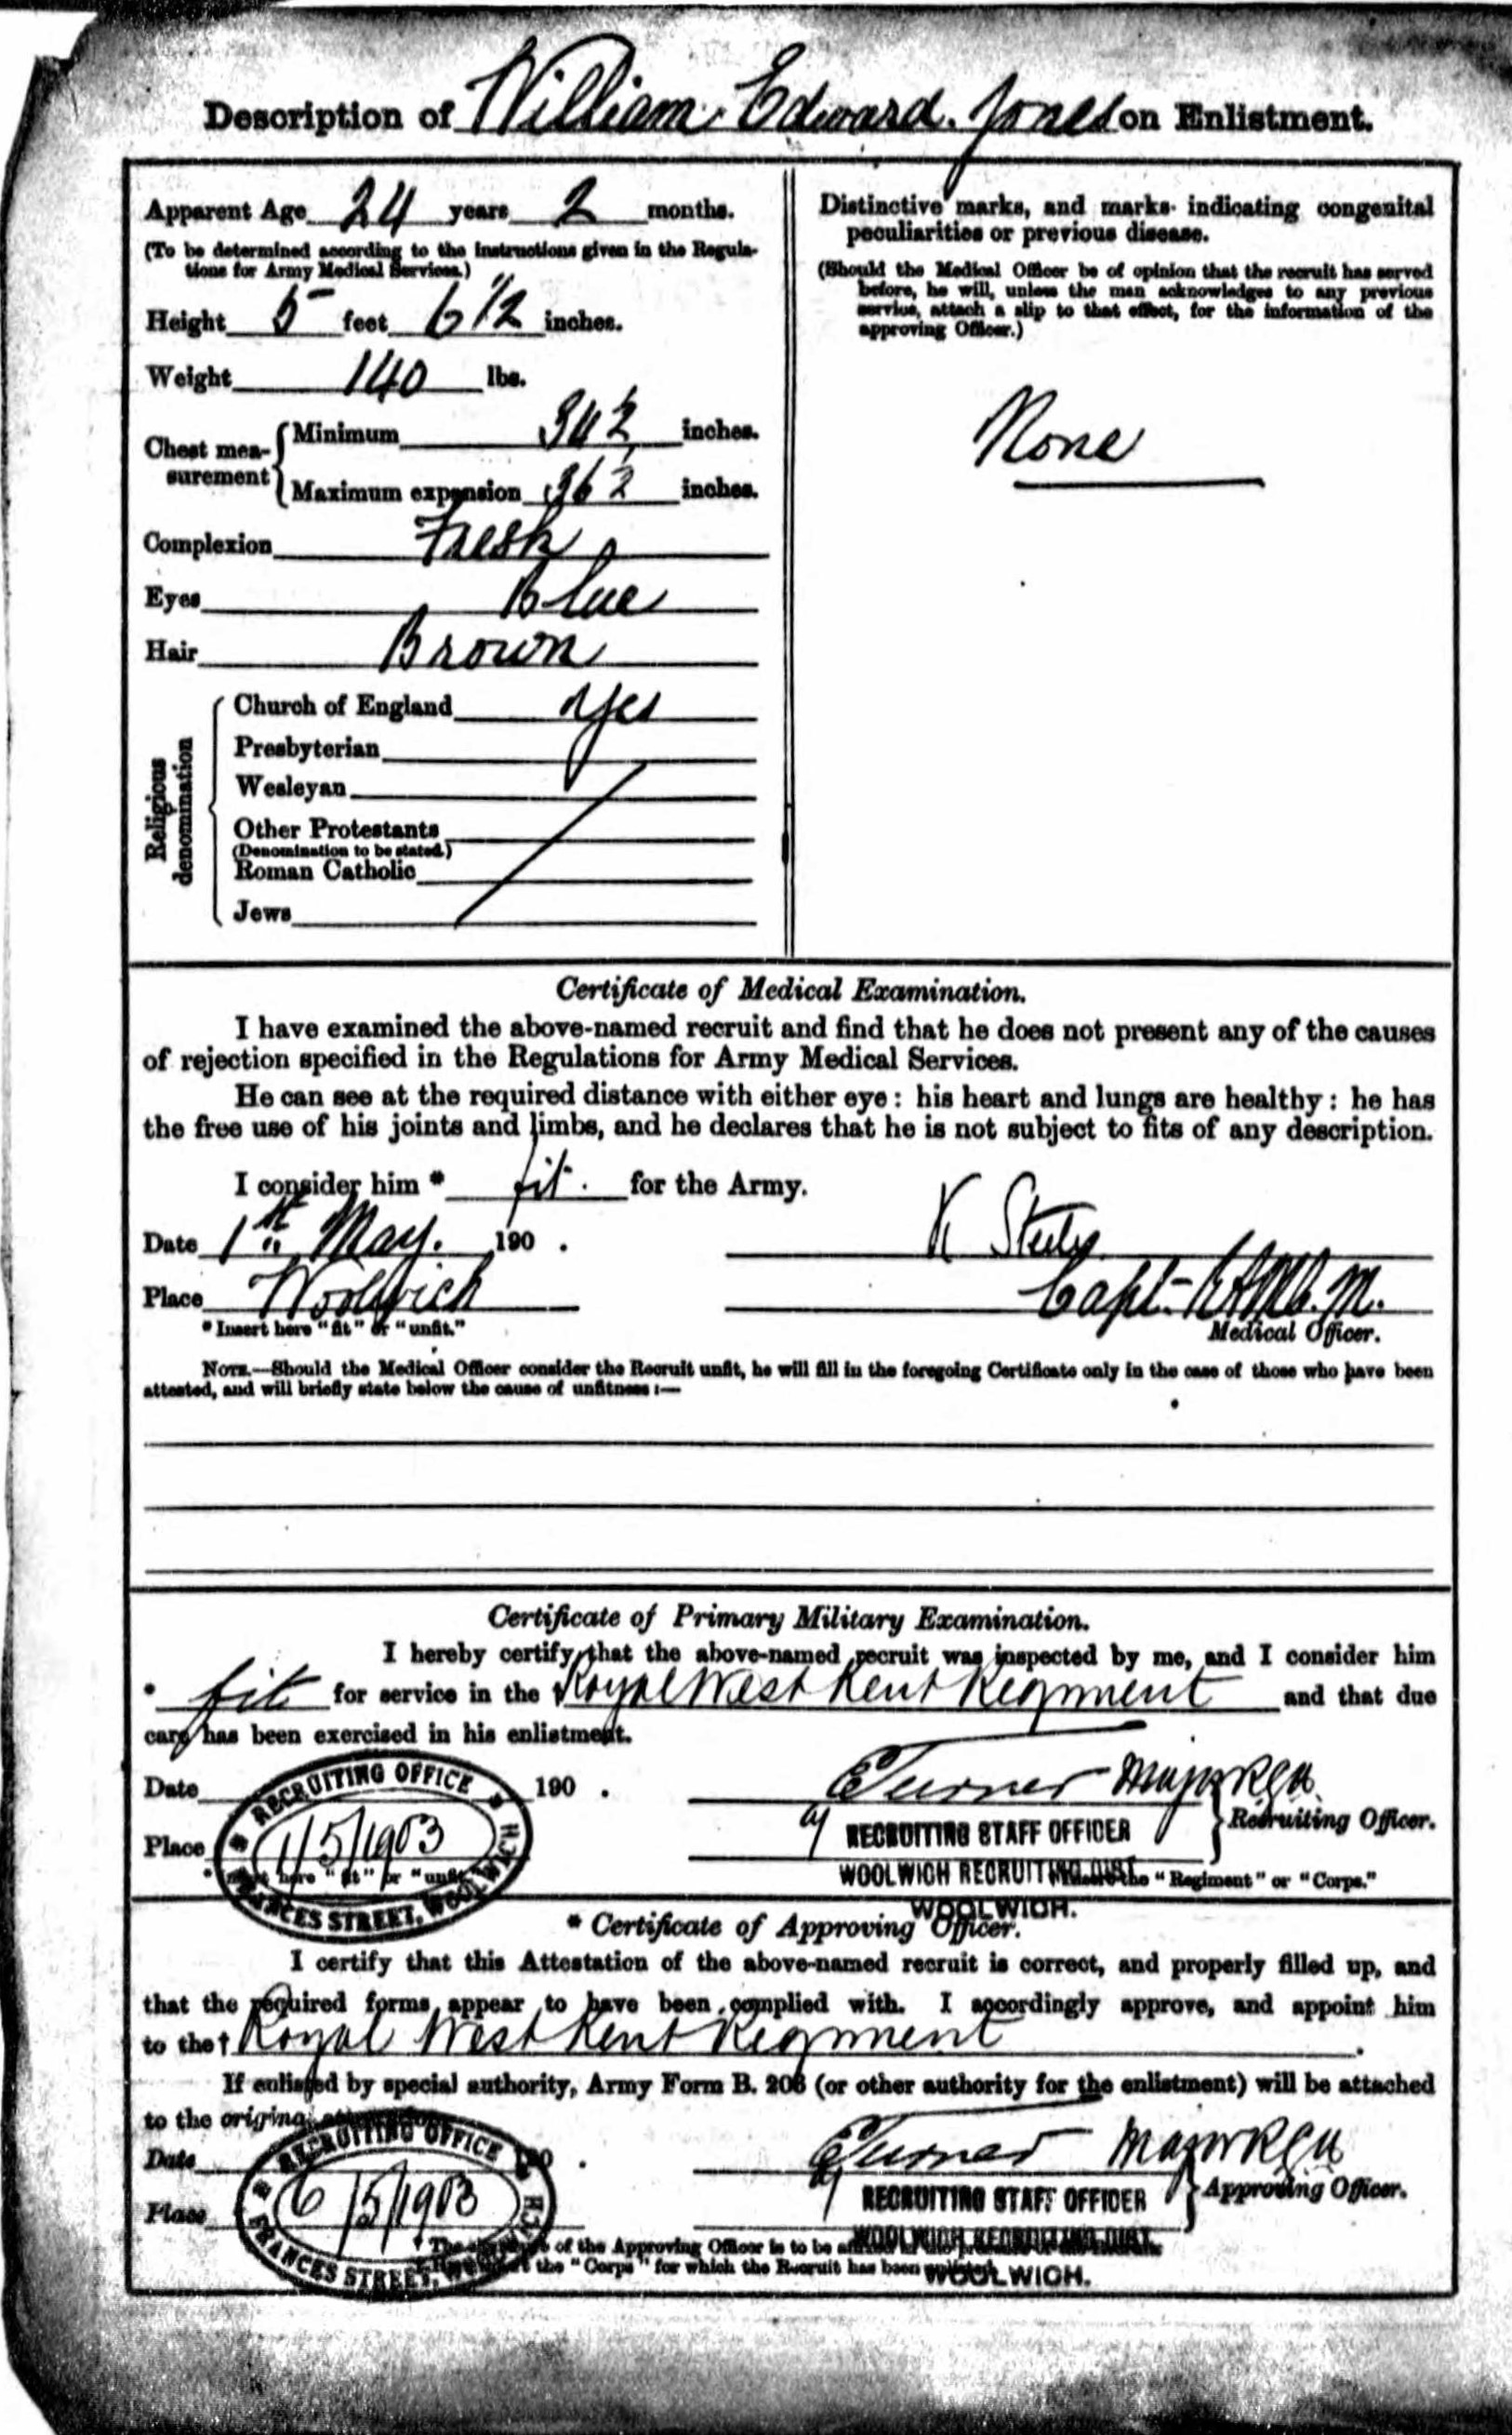 Description of William Edward Jones on Enlistment.
Apparent Age 24 years 2 months.
(To be determined according to the instructions given in the Regula-
tions for Army Medical Services.)
Height 5 feet 6 1/2 inches.
Weight 140 lbs.
Chest mea-
surement
Minimum 34 1/2 inches.
Maximum expansion 36 1/2 inches.
Complexion Fresh
Eyes Blue
Hair Brown
Religious
denomination
Church of England Yes
Presbyterian
Wesleyan
Other Protestants
(Denomination to be stated.)
Roman Catholic
Jews
Distinctive marks, and marks indicating congenital
peculiarities or previous disease.
(Should the Medical Officer be of opinion that the recruit has served
before, he will, unless the man acknowledges to any previous
service, attach a slip to that effect, for the information of the
approving Officer.)
None
Certificate of Medical Examination.
I have examined the above-named recruit and find that he does not present any of the causes
of rejection specified in the Regulations for Army Medical Services.
He can see at the required distance with either eye : his heart and lungs are healthy : he has
the free use of his joints and limbs, and he declares that he is not subject to fits of any description.
I consider him * fit. for the Army.
Date 1st May. 190 .
Place Woolwich
* Insert here "fit" or "unfit."
Capt.
Medical Officer.
NOTE.—Should the Medical Officer consider the Recruit unfit, he will fill in the foregoing Certificate only in the case of those who have been
attested, and will briefly state below the cause of unfitness :—
Certificate of Primary Military Examination.
I hereby certify that the above-named recruit was inspected by me, and I consider him
* fit for service in the † Royal West Kent Regiment and that due
care has been exercised in his enlistment.
Date 190 .
Place
RECRUITING OFFICE
1/5/1903
FRANCES STREET, WOOLWICH
* Insert here "fit" or "unfit."
Turner Major RGA
Recruiting Officer.
RECRUITING STAFF OFFICER
WOOLWICH RECRUITING DIST.
the "Regiment" or "Corps."
WOOLWICH.
* Certificate of Approving Officer.
I certify that this Attestation of the above-named recruit is correct, and properly filled up, and
that the required forms appear to have been complied with. I accordingly approve, and appoint him
to the † Royal West Kent Regiment .
If enlisted by special authority, Army Form B. 203 (or other authority for the enlistment) will be attached
to the original
Date 190 .
Place
RECRUITING OFFICE
6/5/1903
FRANCES STREET, WOOLWICH
Turner Major RGA
Approving Officer.
RECRUITING STAFF OFFICER
WOOLWICH RECRUITING DIST.
of the Approving Officer is to be
the "Corps" for which the Recruit has been
WOOLWICH.